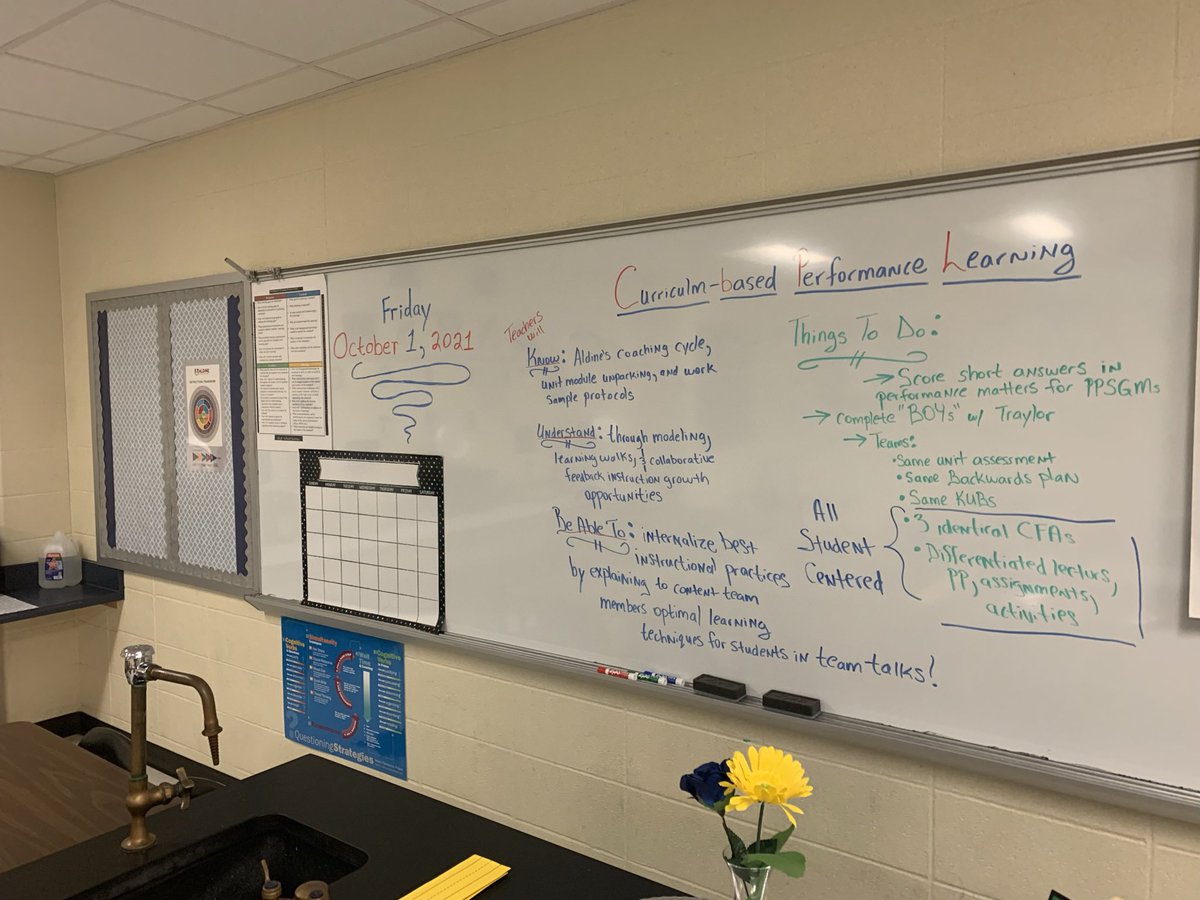 Friday
October 1, 2021
Curriculm-based Performance Learning
Teachers
will
Know: Aldine's coaching cycle,
unit module unpacking, and work
sample protocols
Understand: through modeling,
learning walks, & collaborative
feedback instruction growth
opportunities
Be Able To: internalize best
instructional practices
by explaining to content team
members optimal learning
techniques for students in team talks!
Things To Do:
→ Score short answers in
performance matters for PPSGMs
→ complete "BOYs" w/ Traylor
→ Teams:
• Same unit assessment
• Same Backwards plan
• Same KUBs
• 3 identical CFAs
• Differentiated lecturs,
PP, assignments,
activities
All
Student
Centered
SUNDAY MONDAY TUESDAY WEDNESDAY THURSDAY FRIDAY SATURDAY
ALDINE
Simultaneity
Cognitive
Verbs
Wait
Time
Cognitive
Verbs
Questioning Strategies